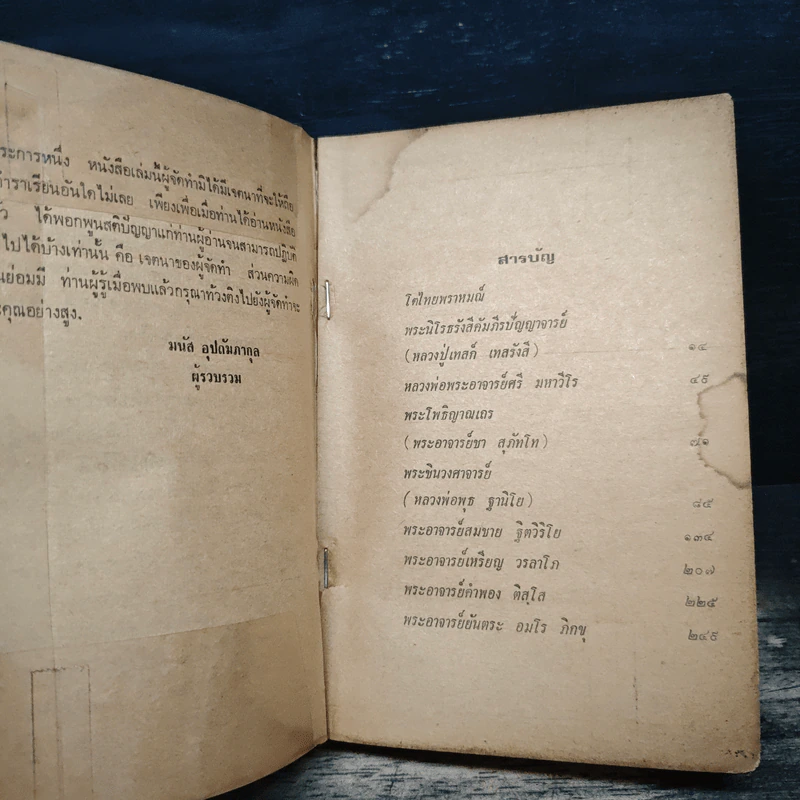 ระการหนึ่ง หนังสือเล่มนี้ผู้จัดทำมิได้มีเจตนาที่จะให้ถือ
ตำราเรียนอันใดไม่เลย เพียงเพื่อเมื่อท่านได้อ่านหนังสือ
ได้พอกพูนสติปัญญาแก่ท่านผู้อ่านจนสามารถปฏิบัติ
ไปได้บ้างเท่านั้น คือ เจตนาของผู้จัดทำ ส่วนความผิด
นย่อมมี ท่านผู้รู้เมื่อพบแล้วกรุณาท้วงติงไปยังผู้จัดทำจะ
ะคุณอย่างสูง.
มนัส อุปถัมภากุล
ผู้รวบรวม
สารบัญ
โตไทยพราหมณ์
พระนิโรธรังสีคัมภีรปัญญาจารย์
(หลวงปู่เทสก์ เทสรังสี) ๑๔
หลวงพ่อพระอาจารย์ศรี มหาวีโร ๔๕
พระโพธิญาณเถร
(พระอาจารย์ชา สุภัทโท) ๗๑
พระชินวงศาจารย์
(หลวงพ่อพุธ ฐานิโย) ๘๕
พระอาจารย์สมชาย ฐิตวิริโย ๑๓๔
พระอาจารย์เหรียญ วรลาโภ ๒๐๗
พระอาจารย์คำพอง ติสฺโส ๒๒๕
พระอาจารย์ยันตระ อมโร ภิกขุ ๒๔๕